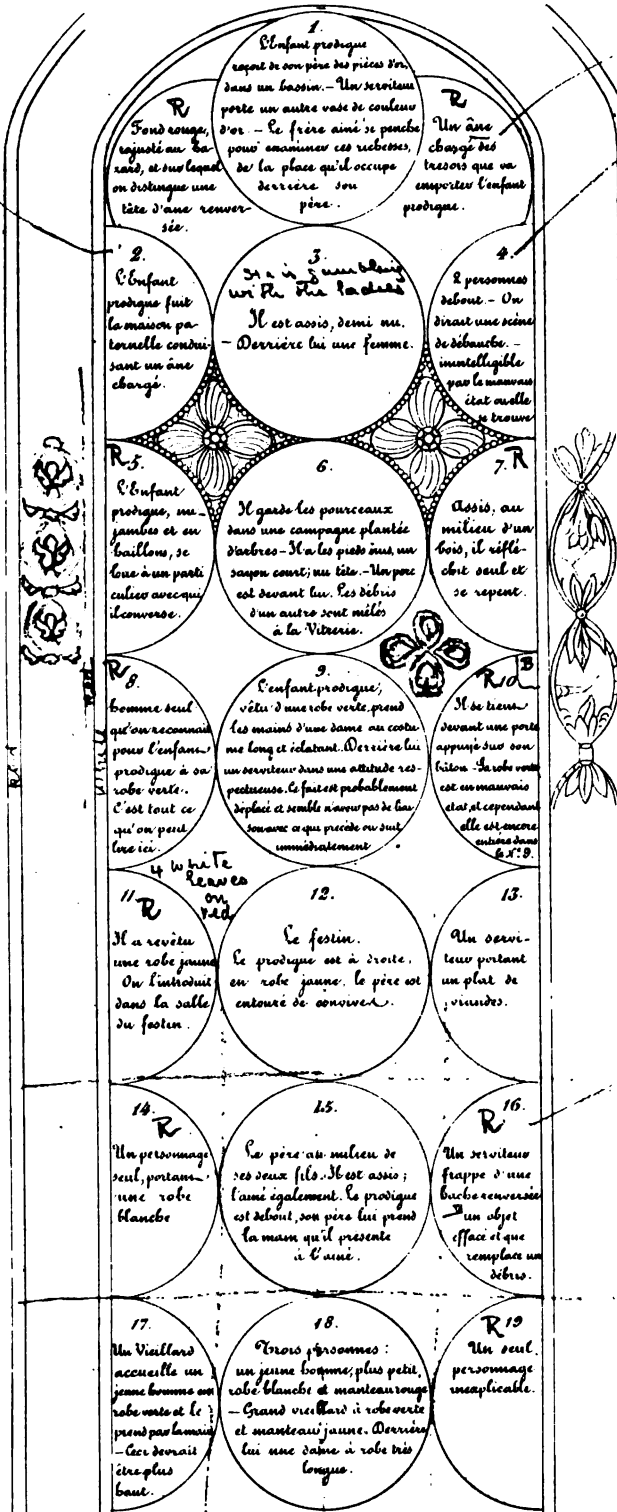 1.
L'Enfant prodigue
reçoit de son père des pièces d'or,
dans un bassin. – Un serviteur
porte un autre vase de couleur
d'or. – Le frère ainé se penche
pour examiner ces richesses,
de la place qu'il occupe
derrière son
père.
R
Fond rouge,
rajusté au ha-
zard, et sur lequel
on distingue une
tête d'ane renver-
sée.
R
Un âne
chargé des
tresors que va
emporter l'enfant
prodigue.
2.
L'Enfant
prodigue fuit
la maison pa-
ternelle condui-
sant un âne
chargé.
3
He is gambling
with the ladies
Il est assis, demi nu.
– Derrière lui une femme.
4.
2 personnes
debout. – On
dirait une scène
de débauche. –
inintelligible
par le mauvais
état ou elle
se trouve
R 5.
L'Enfant
prodigue, nu-
jambes et en
haillons, se
loue à un parti
culier avec qui
il converse.
6.
Il garde les pourceaux
dans une campagne plantée
d'arbres – Il a les pieds nus, un
sayon court; nu tête. – Un porc
est devant lui. Les débris
d'un autre sont mêlés
à la Vitrerie.
7. R
Assis, au
milieu d'un
bois, il réflé-
chit seul et
se repent.
R 8.
homme seul
qu'on reconnait
pour l'enfant
prodigue à sa
robe verte.
C'est tout ce
qu'on peut
lire ici.
9.
L'enfant prodigue,
vêtu d'une robe verte, prend
les mains d'une dame au costu
me long et éclatant. Derrière lui
un serviteur dans une attitude res-
pectueuse. Ce fait est probablement
déplacé et semble n'avoir pas de liai
son avec ce qui précède ou suit
immédiatement
R 10 B
Il se tient
devant une porte
appuyé sur son
bâton – Sa robe verte
est en mauvais
etat, et cependant
elle est encore
entière dans
le N.° 9.
Red
White
Red
4 white
leaves
on
red
11. R
Il a revêtu
une robe jaune
On l'introduit
dans la salle
du festin.
12.
Le festin.
Le prodigue est à droite,
en robe jaune. le père est
entouré de convives.
13.
Un servi-
teur portant
un plat de
viandes.
14.
R
Un personnage
seul, portant
une robe
blanche
15.
Le père au milieu de
ses deux fils. Il est assis;
l'ainé également. Le prodigue
est debout, son père lui prend
la main qu'il présente
à l'ainé.
R 16.
Un serviteur
frappe d'une
hache renversée
un objet
effacé et que
remplace un
débris.
17.
Un Vieillard
accueille un
jeune homme en
robe verte et le
prend par la main
– Ceci devrait
être plus
haut.
18.
Trois personnes:
un jeune homme, plus petit,
robe blanche et manteau rouge
– Grand vieillard à robe verte
et manteau jaune. Derrière
lui une dame à robe très
longue.
R 19
Un seul
personnage
inexplicable.